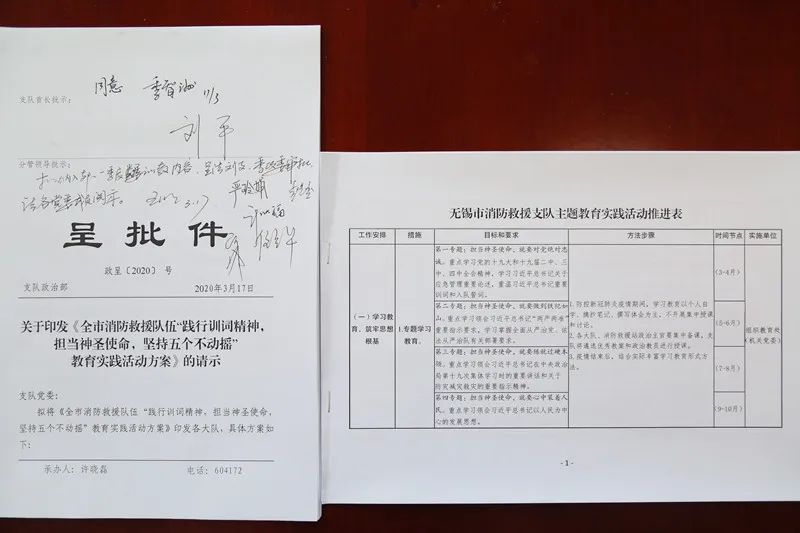 支队首长批示：
同意
刘平
分管领导批示：
呈批件
政呈〔2020〕 号
支队政治部
2020年3月17日
关于印发《全市消防救援队伍“践行训词精神，
担当神圣使命，坚持五个不动摇”
教育实践活动方案》的请示
支队党委：
拟将《全市消防救援队伍“践行训词精神，担当神圣使命，
坚持五个不动摇”教育实践活动方案》印发各大队，具体方案如
下：
承办人：许晓磊
电话：604172
无锡市消防救援支队主题教育实践活动推进表
工作安排 措施 目标和要求 方法步骤 时间节点 实施单位
（一）学习教
育，筑牢思想
根基
1.专题学习
教育。
第一专题：担当神圣使命、就要对党绝对忠
诚。重点学习党的十九大和十九届二中、三
中、四中全会精神，学习习近平总书记关于
应急管理重要论述，重温习近平总书记重要训
词和入队誓词。
第二专题：担当神圣使命、就要做到铁纪如
山。重点学习领会习近平总书记“两严两准”
重要指示要求，学习掌握全面从严治党、依
法从严治队有关部署要求。
第三专题：担当神圣使命、就要练就过硬本
领。重点学习领会习近平总书记在中央政治
局第十九次集体学习时的重要讲话和关于
防灾减灾救灾的重要指示精神。
第四专题：担当神圣使命、就要心中装着人
民。重点学习领会习近平总书记以人民为中
心的发展思想。
1.防控新冠肺炎疫情期间，学习教育以个人自
学、摘抄笔记、撰写体会为主，不开展集中授课
和讨论。
2.各大队、消防救援站政治主官要集中备课，支
队将遴选优秀教案和政治教员进行授课。
3.疫情结束后，结合实际丰富学习教育形式方
法。
（3-4月）
（5-6月）
（7-8月）
（9-10月）
组织教育处
（机关党委）
- 1 -